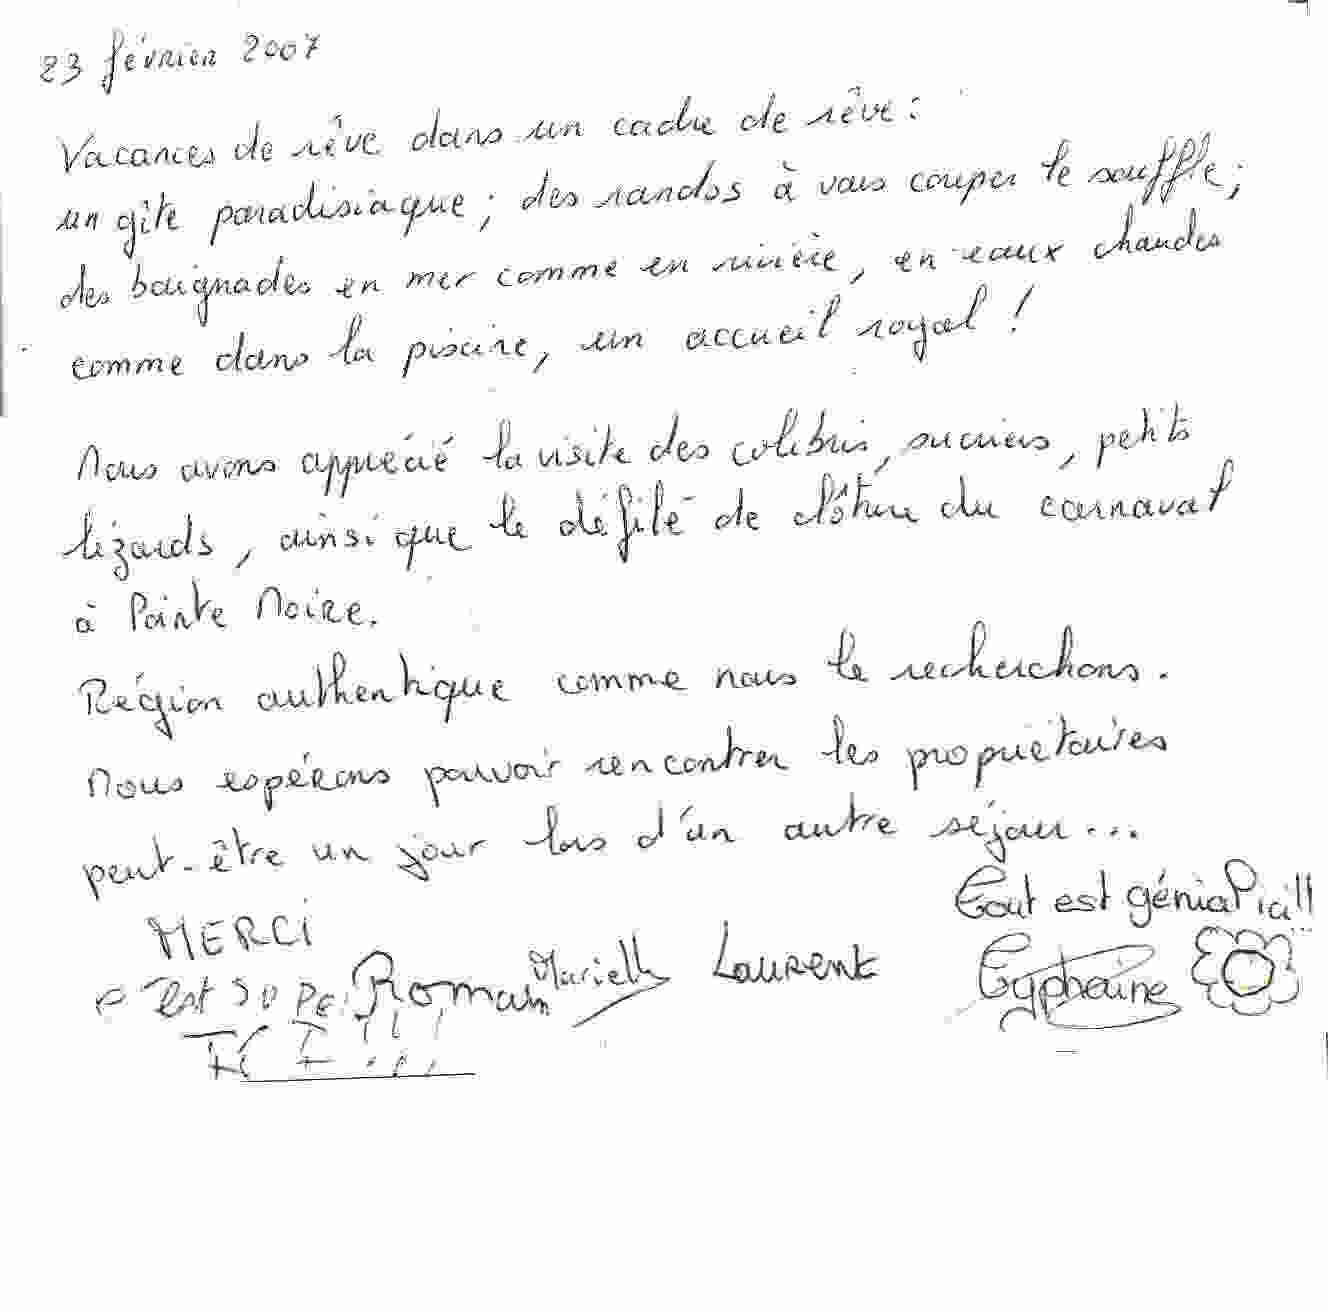 23 février 2007
Vacances de rêve dans un cadre de rêve :
un gîte paradisiaque ; des randos à vous couper le souffle ;
des baignades en mer comme en rivière, en eaux chaudes
comme dans la piscine, un accueil royal !
Nous avons apprécié la visite des colibris, sucriers, petits
lézards, ainsi que le défilé de clôture du carnaval
à Pointe Noire.
Région authentique comme nous le recherchons.
Nous espérons pouvoir rencontrer les propriétaires
peut-être un jour lors d'un autre séjour...
Tout est génial ici!!!
MERCI
Romain Marielle Laurent Typhaine
c'est supe
ICI !!!